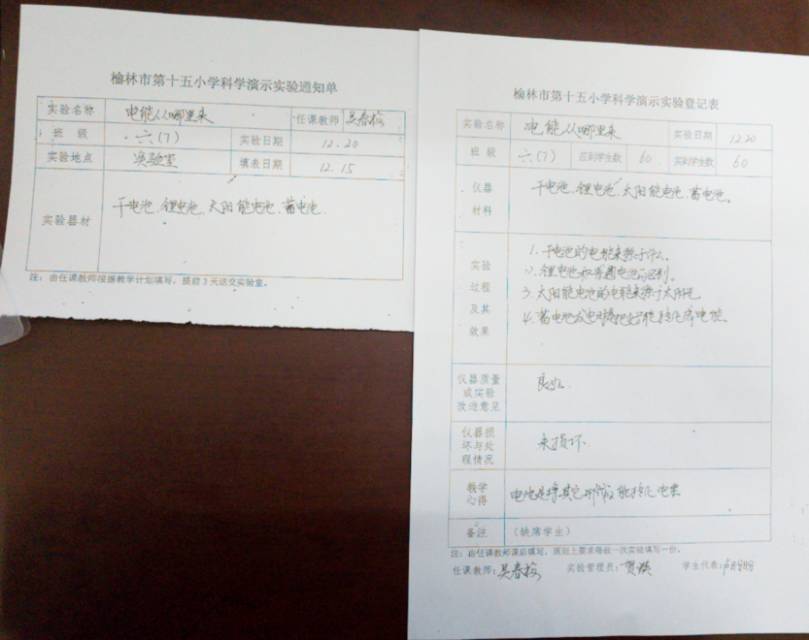 榆林市第十五小学科学演示实验通知单
实验名称 电能从哪里来 任课教师 吴春梅
班 级 六(7) 实验日期 12.20
实验地点 实验室 填表日期 12.15
实验器材 干电池、锂电池、太阳能电池、蓄电池
注：由任课教师根据教学计划填写，提前3天送交实验室。
榆林市第十五小学科学演示实验登记表
实验名称 电能从哪里来 实验日期 12.20
班 级 六(7) 应到学生数 60 实到学生数 60
仪器材料 干电池、锂电池、太阳能电池、蓄电池。
实验过程及其效果
1. 干电池的电能来源于什么。
2. 锂电池和普通电池的区别。
3. 太阳能电池的电能来源于太阳能
4. 蓄电池
仪器质量或实验改进意见 良好.
仪器损坏与处理情况 未损坏.
教学心得 电池是将其它形式 能转化 电能
备注 （缺席学生）
注：由任课教师课后填写，原则上要求每做一次实验填写一份。
任课教师：吴春梅 实验管理员： 学生代表：